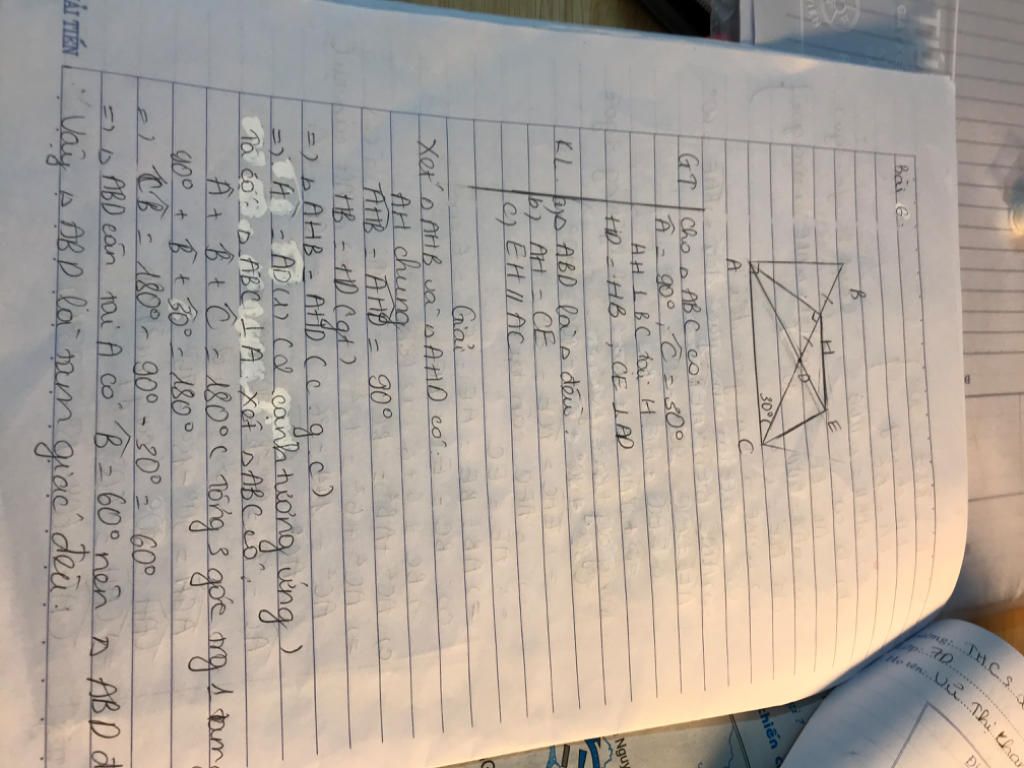 Bài 6:
B
H
E
D
A
30°
C
GT Cho △ ABC có:
Â = 90°, Ĉ = 30°
AH ⊥ BC tại H
HD = HB, CE ⊥ AD
KL a) △ ABD là △ đều.
b) AH = CE
c) EH // AC
Giải
Xét △ AHB và △ AHD có:
AH chung
AHB = AHD = 90°
HB = HD (gt)
=> △ AHB = AHD (c g c)
=> AB = AD (2 cạnh tương ứng)
Xét △ ABC có:
Â + B̂ + Ĉ = 180° (tổng 3 góc ng 1 tam
90° + B̂ + 30° = 180°
=> B̂ = 180° - 90° - 30° = 60°
=> △ ABD cân tại A có B̂ = 60° nên △ ABD đ
Vậy △ ABD là tam giác đều.
ẢI TIẾN
THCS
7D
Vũ Thị
Nguy
chiến